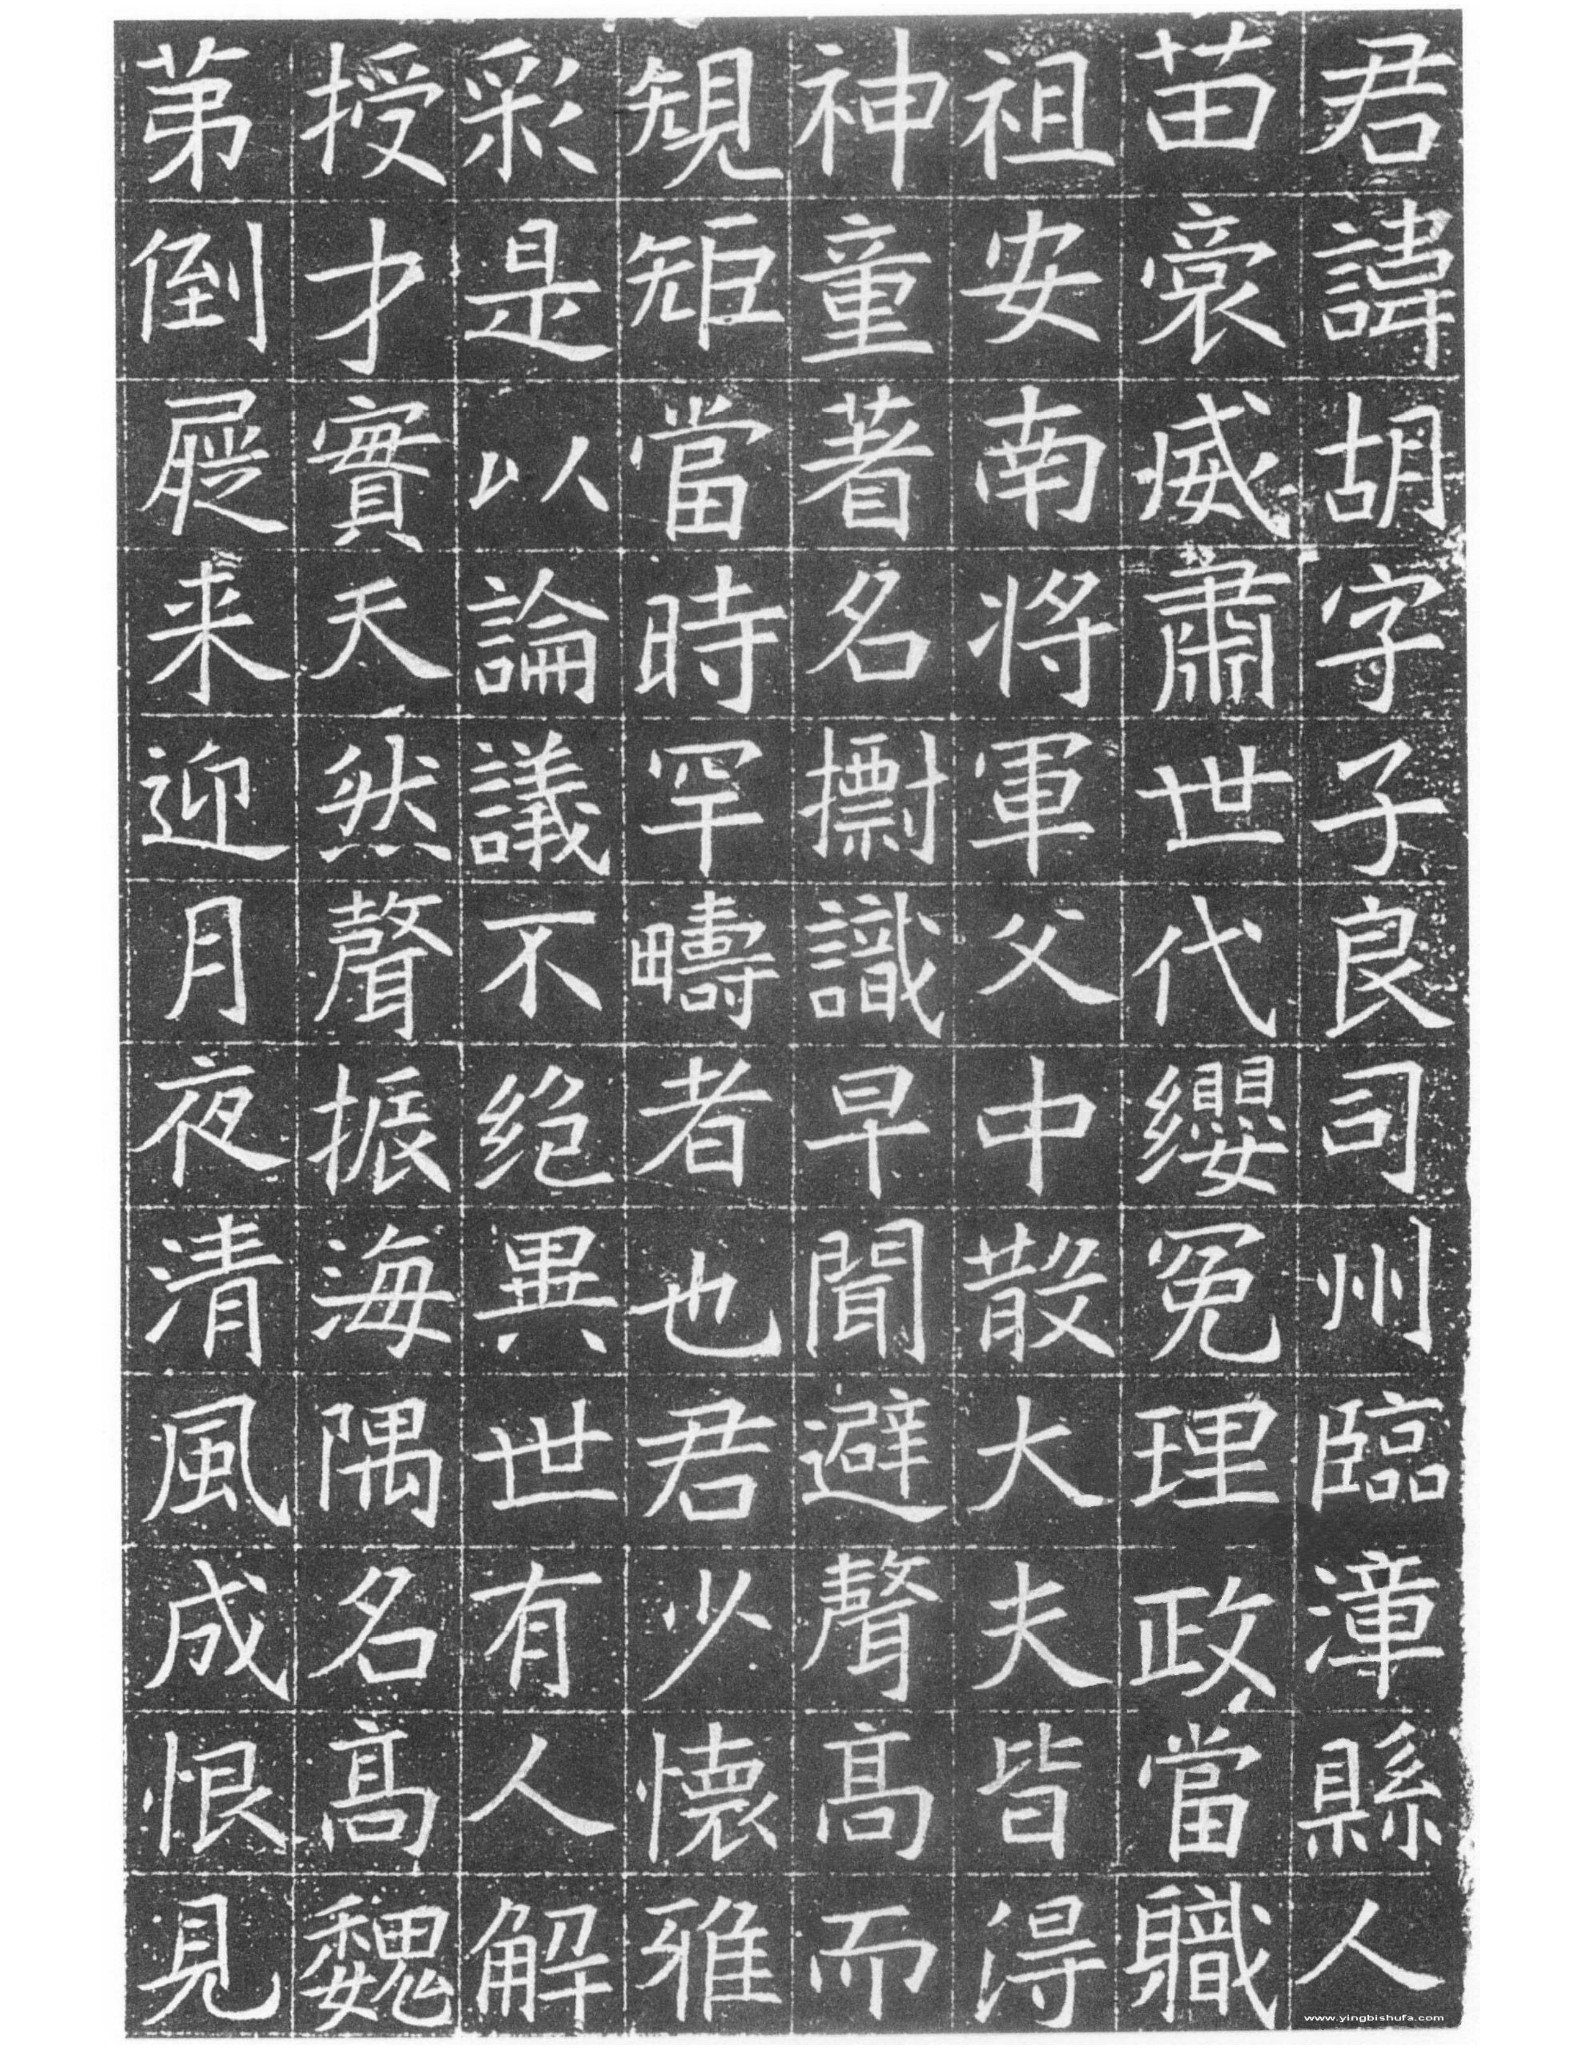 君諱胡字子良司州臨漳縣人
苗裔威肅世代纓冕理政當職
祖安南将軍父中散大夫皆淂
神童著名識早聞避聲髙而
䂓矩當時罕疇者也君少懷雅
彩是以論議不絕異世有人解
授才實天然聲振海隅名髙魏
苐倒屣来迎月夜清風成恨見
www.yingbishufa.com